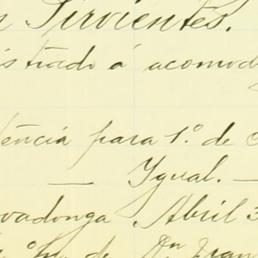 Sirvientes.
istrado á acomod
tencia para 1.º de
— Ygual. —
vadonga Abril 3
de Dn Fran